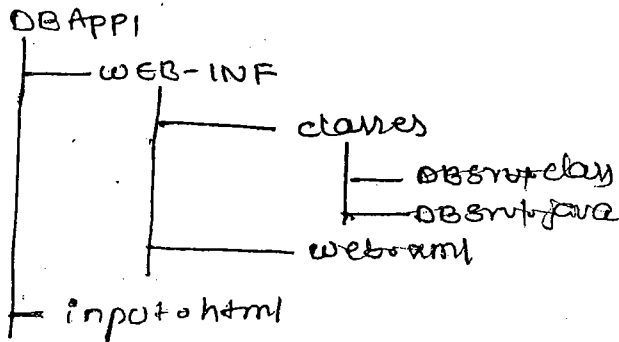 DBAPP1
WEB-INF
classes
DBSrv.class
DBSrv.java
web.xml
input.html